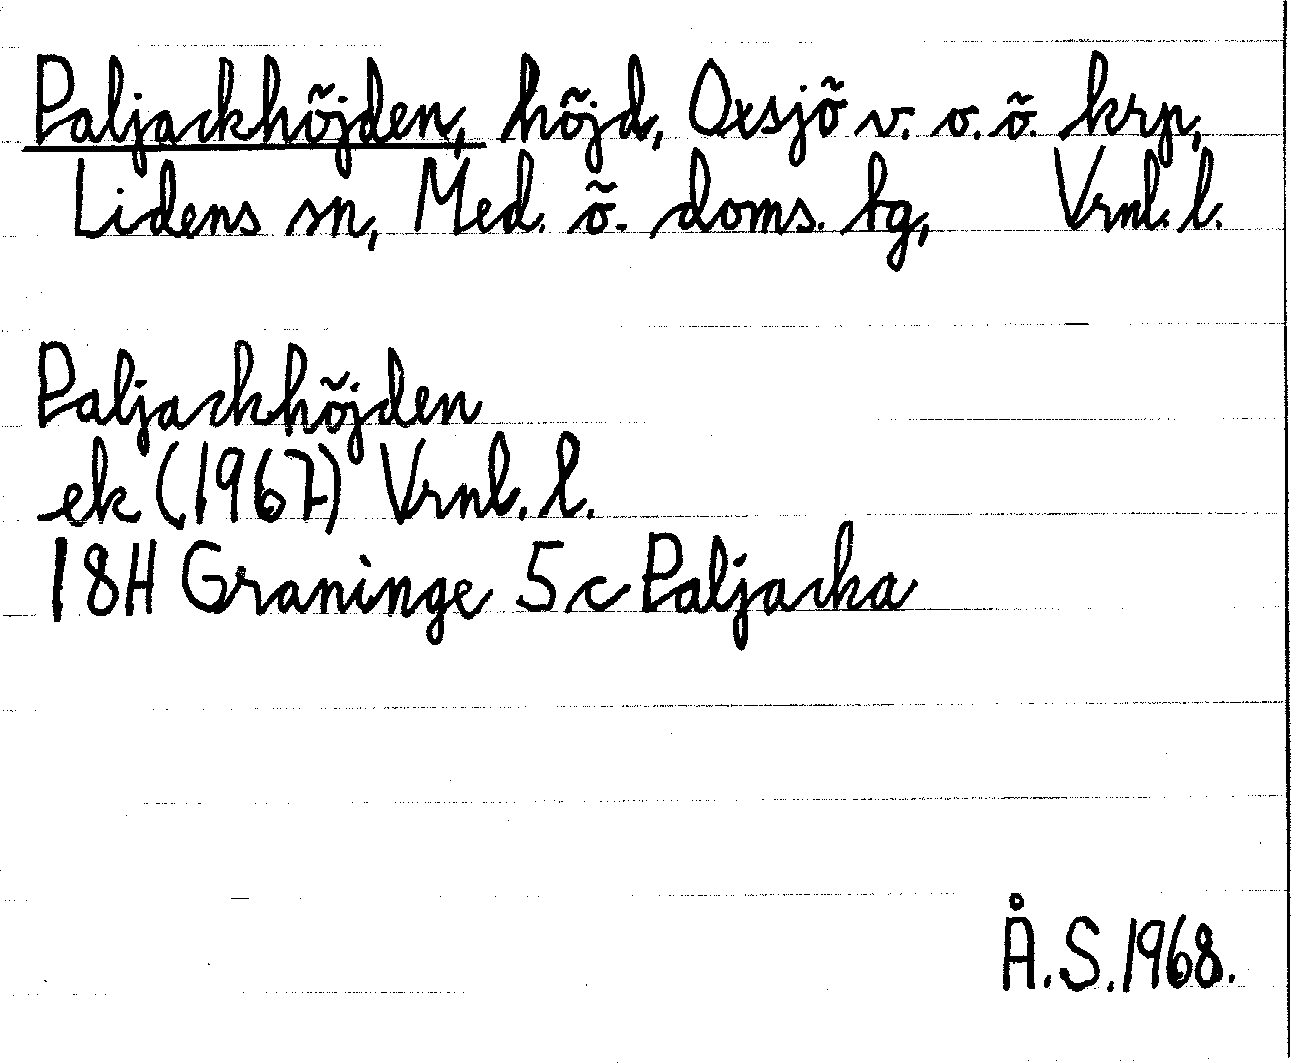 Paljackhöjden, höjd, Oxsjö v. o. ö. krp,
Lidens sn, Med. ö. doms. tg, Vrnl. l.
Paljackhöjden
ek (1967) Vrnl. l.
18H Graninge 5 c Paljacka
Å.S. 1968.